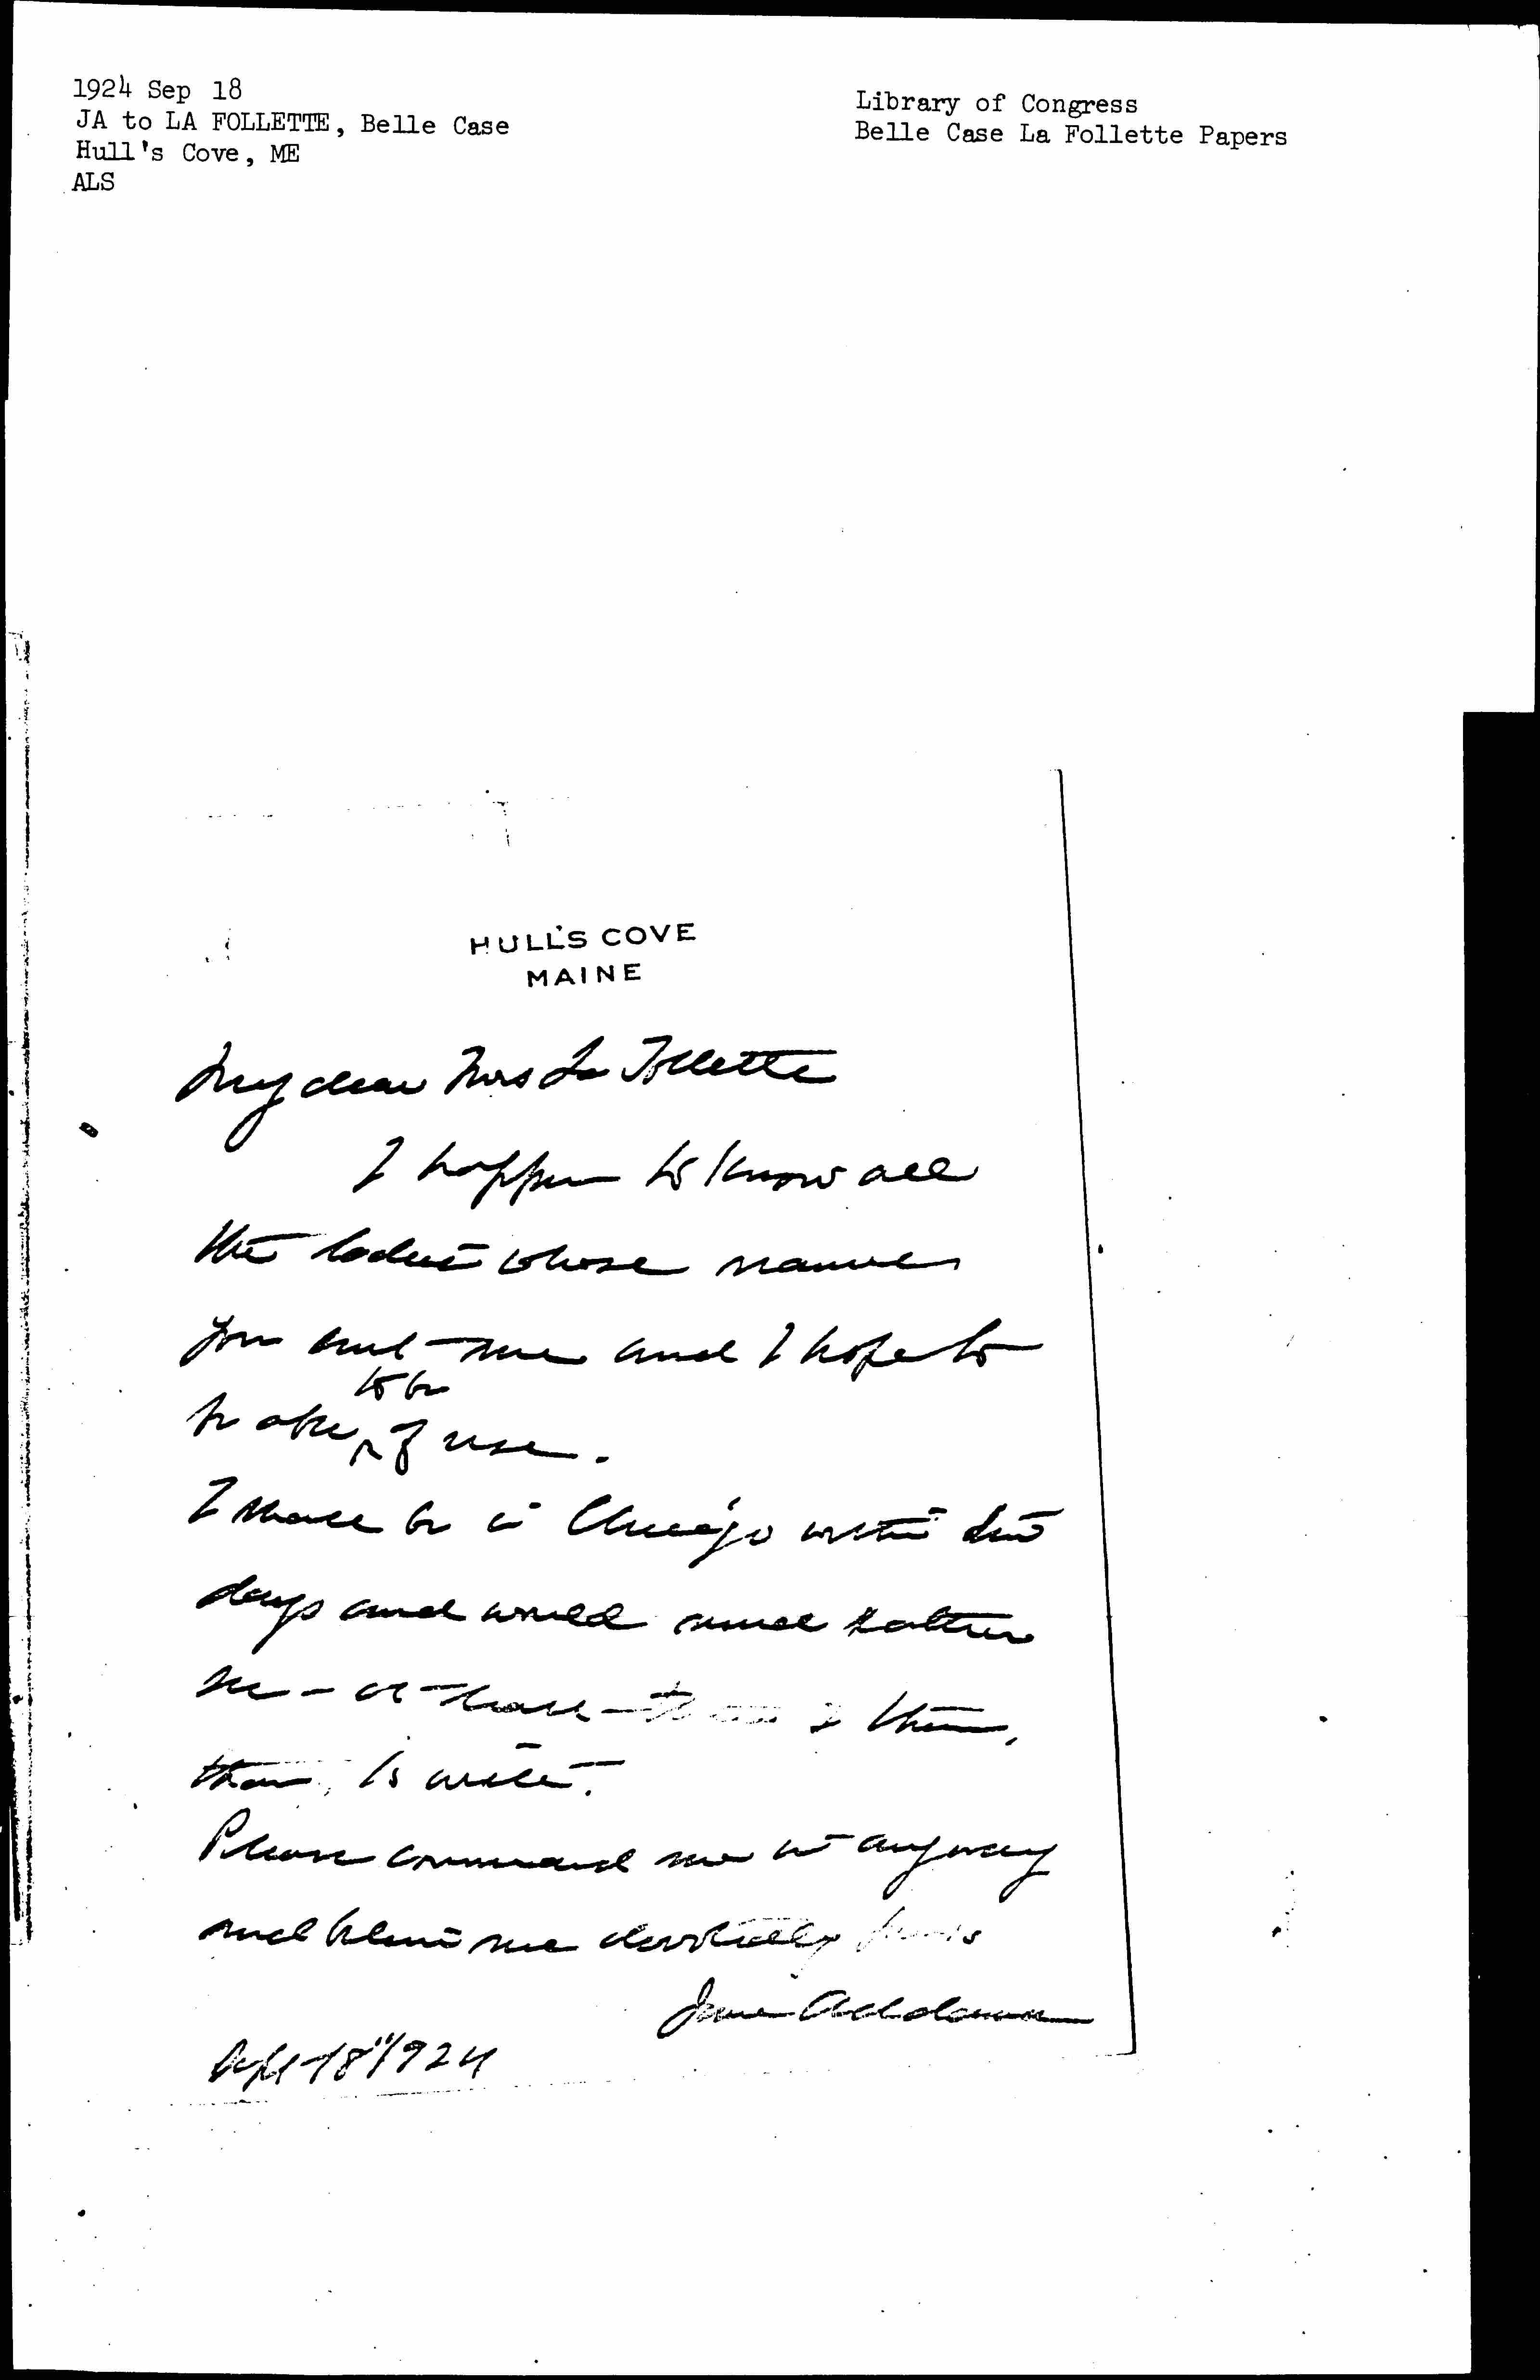 1924 Sep 18
JA to LA FOLLETTE, Belle Case
Hull's Cove, ME
ALS
Library of Congress
Belle Case La Follette Papers
HULL'S COVE
MAINE
My dear Mrs La Follette
I happen to know all
the ladies whose names
you sent me and I hope to
be able to be of use.
I shall be in Chicago within ten
days and would much rather
see - or have them,
than to write.
Please command me in anyway
and believe me devotedly yours
Jane Addams
Sept 18" 1924